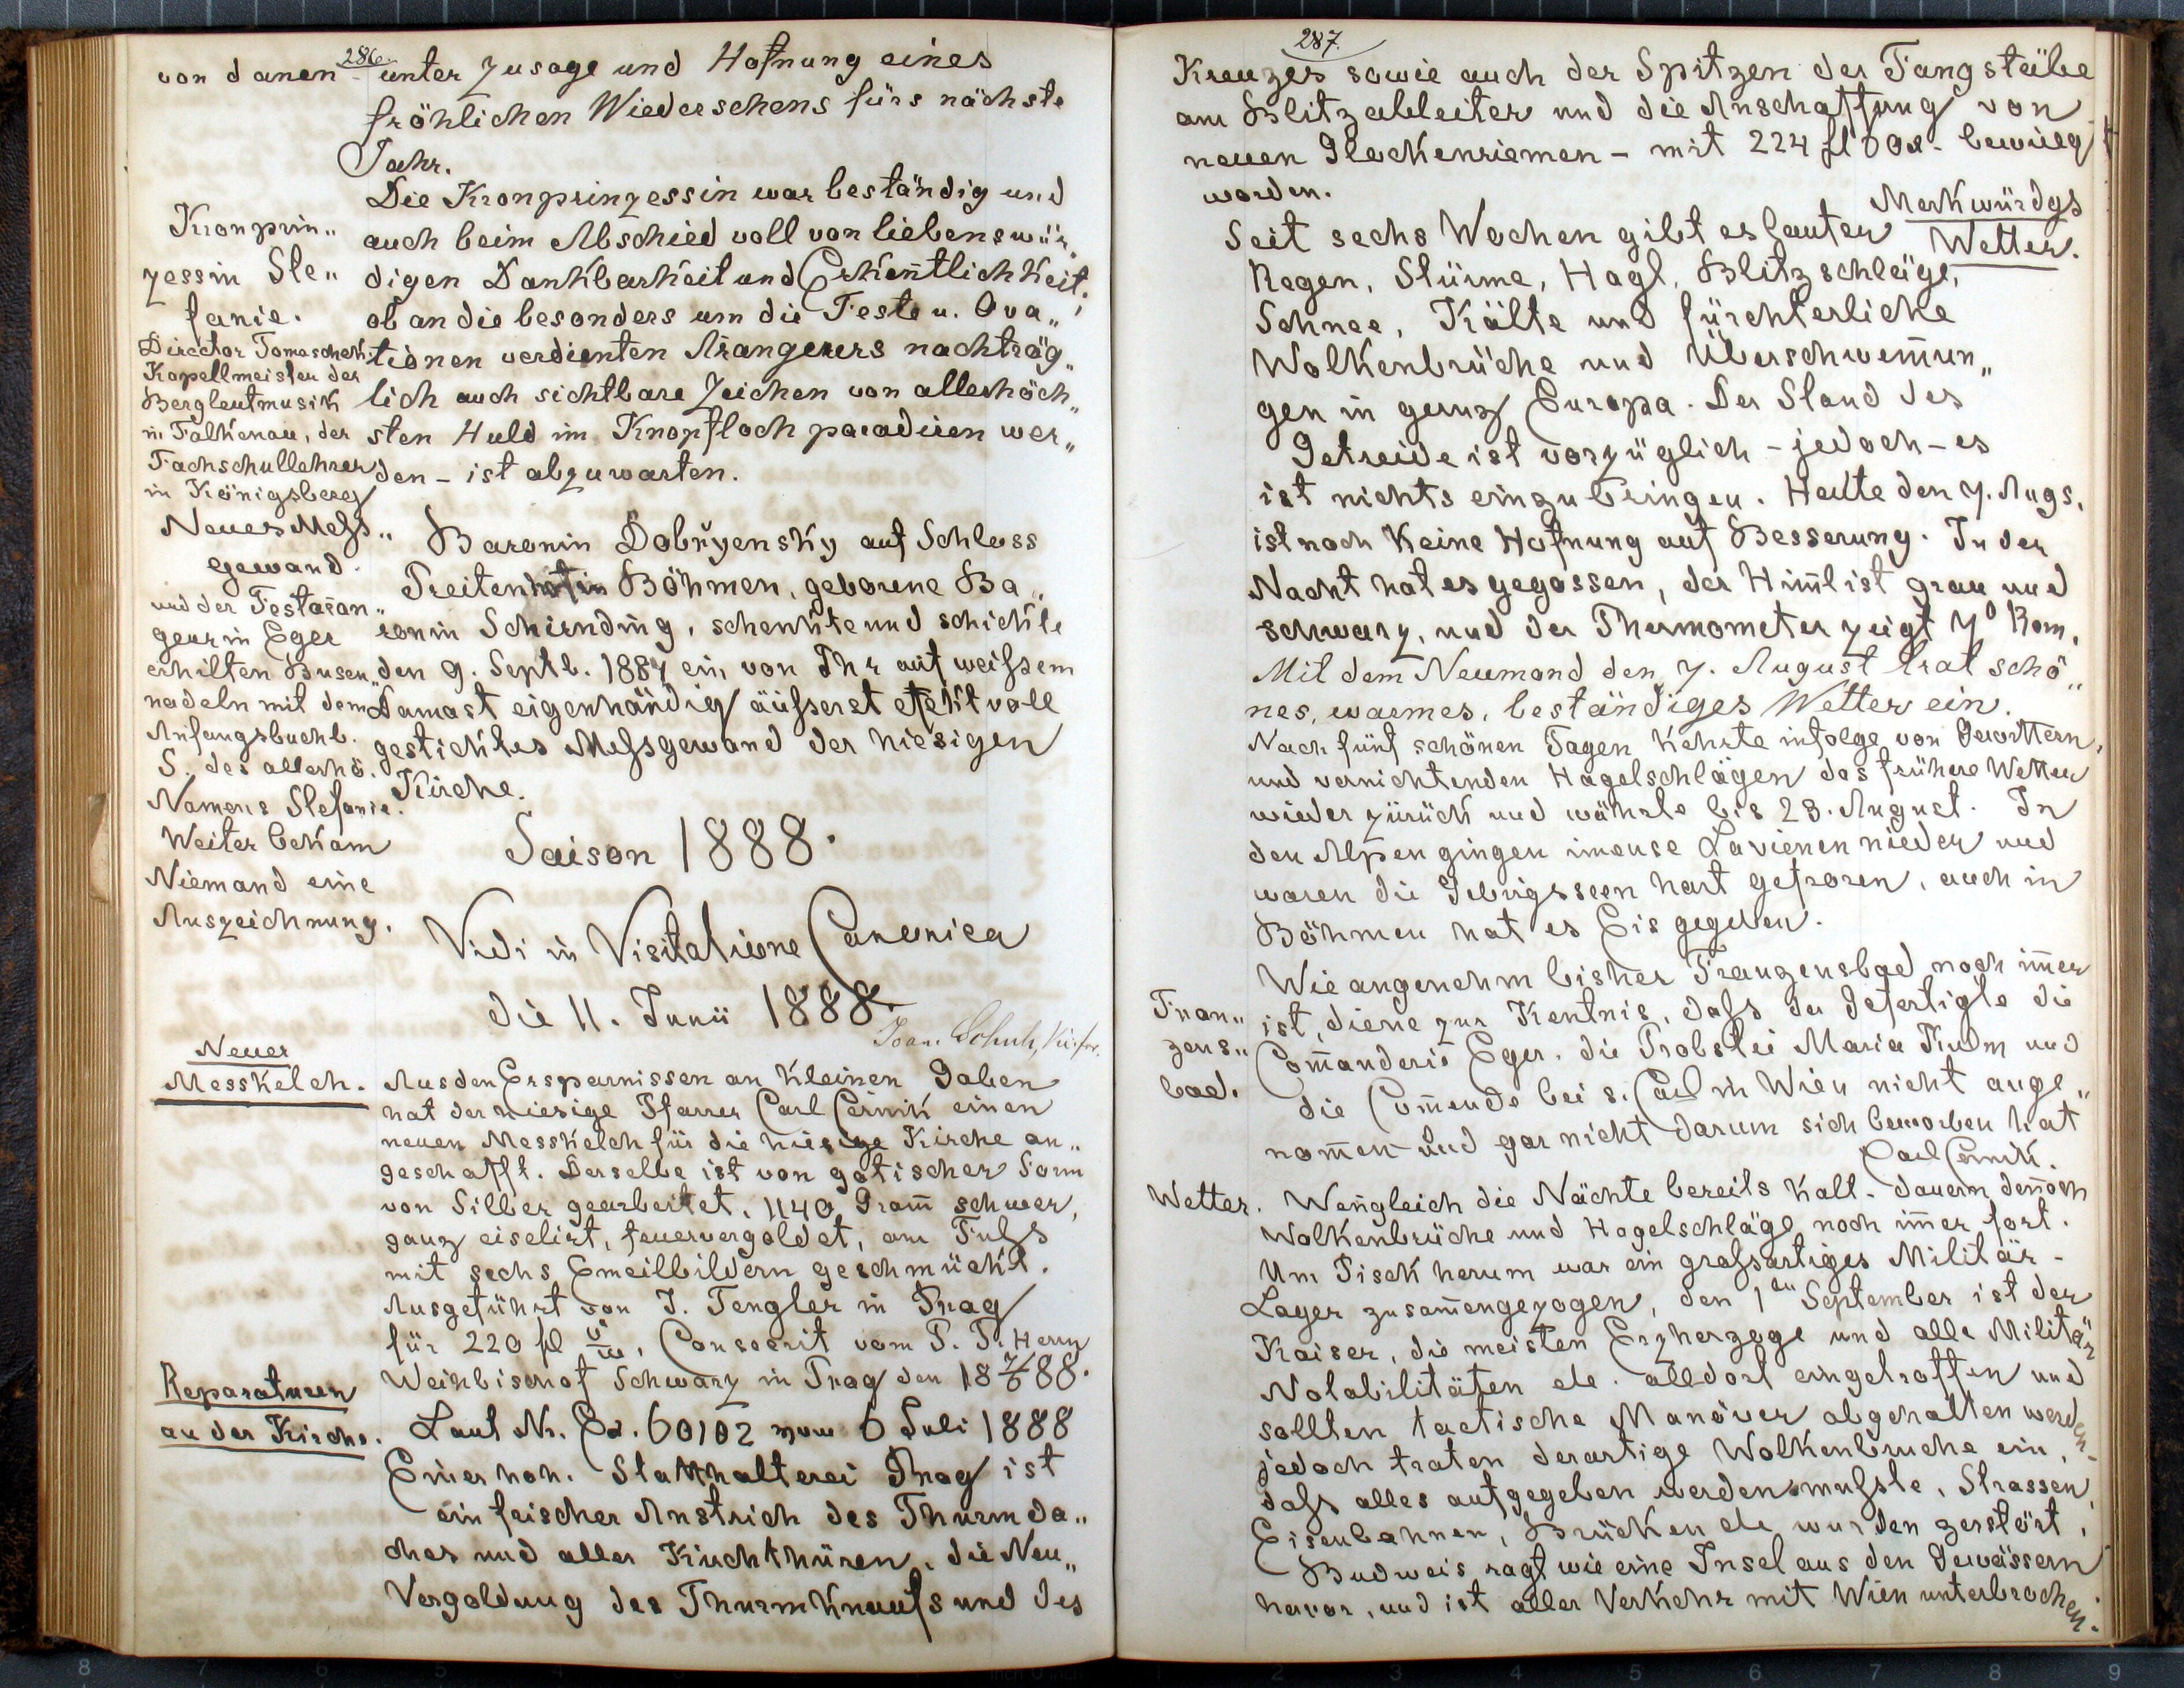 286.
von danen - unter Zusage und Hofnung eines
fröhlichen Wiedersehens fürs nächste
Jahr.
Kronprin„
zessin Ste„
fanie.
Die Kronprinzessin war beständig und
auch beim Abschied voll von liebenswür„
digen Dankbarkeit und Erken̄tlichkeit;
ob an die besonders um die Feste u. Ova„
tionen verdienten Arangerers nachträg„
lich auch sichtbare Zeichen von allerhöch„
sten Huld im Knopfloch paradieren wer„
den - ist abzuwarten.
Director Tomaschek,
Kapellmeister der
Bergleutmusik
in Falkenau, der
Fachschullehrer
in Königsberg
und der Festaran„
geur in Eger
erhilten Busen„
nadeln mit dem
Anfangsbuchb.
S. des allerhö.
Namens Stefanie.
Weiter bekam
Niemand eine
Auszeichnung.
Neues Meß„
gewand.
Baronin Dobrýensky auf Schloss
Treitenstein Böhmen, geborene Ba„
ronin Schirnding, schenkte und schickte
den 9. Septb. 1887 ein von Ihr auf weißem
Damast eigenhändig äüßerst efektvoll
gesticktes Meßgewand der hiesigen
Kirche.
Saison 1888.
Vidi in Visitatione Canonica
die 11. Junii 1888.
Joan. Schuh,
Neuer
Messkelch.
Aus den Ersparnissen an kleinen Gaben
hat der hiesige Pfarrer Carl Černik einen
neuen Messkelch für die hiesige Kirche an„
geschafft. Derselbe ist von gotischer Form
von Silber gearbeitet, 1140 Gram̄ schwer,
ganz ciselirt, feuervergoldet, am Fuße
mit sechs Emeilbildern geschmückt.
Ausgeführt von J. Tengler in Prag
für 220 fl Consecrit vom P. T. Herrn
Weihbischof Schwarz in Prag den 18 7/6 88.
Reparaturen
an der Kirche.
Laut Nr. Ex. 60102 vom 6 Juli 1888
Einer hoh. Statthalterei Prag ist
ein frischer Anstrich des Thurmda„
ches und aller Kirchthüren, die Neu„
Vergoldung des Thurmknaufs und des
287.
Kreuzes sowie auch der Spitzen der Fangstäbe
am Blitzableiter und die Anschaffung von
neuen Glockenriemen - mit 224 fl bewiligt
worden.
Merkwürdgs
Wetter.
Seit sechs Wochen gibt es lauter
Regen, Stürme, Hagl, Blitzschläge,
Schnee, Kälte und fürchterliche
Wolkenbrüche und Überschwem̄un„
gen in ganz Europa. Der Stand des
Getreide ist vorzüglich - jedoch - es
ist nichts einzubringen. Heute den 7. Augs.
ist noch keine Hofnung auf Besserung. In der
Nacht hat es gegossen, der Him̄l ist grau und
schwarz, und der Thermometer zeigt 7⁰ Rom.
Mit dem Neumond den 7. August trat schö„
nes, warmes, beständiges Wetter ein.
Nach fünf schönen Tagen kehrte infolge von Gewittern,
und vernichtenden Hagelschlägen das frühere Wetter
wieder zürück und währte bis 23. August. In
den Alpen gingen imense Lavienen nieder und
waren die Gebirgsseen hart gefroren, auch in
Böhmen hat es Eis gegeben.
Fran„
zens„
bad.
Wie angenehm bisher Franzensbad noch im̄er
ist, diene zur Kentnis, daß der Gefertigte die
Com̄anderie Eger, die Probstei Maria Kulm und
die Com̄ende bei s. Carl in Wien nicht ange„
nom̄en und gar nicht darum sich beworben hat
Carl Černik.
Wetter.
Wen̄gleich die Nächte bereits kalt - dauern den̄och
Wolkenbrüche und Hagelschläge noch im̄er fort.
Um Pisek herum war ein großartiges Militär-
Lager zusam̄engezogen, den 1ten September ist der
Kaiser, die meisten Erzherzoge und alle Militär
Notabilitäten etc. alldort eingetroffen und
sollten tactische Manöver abgehalten werden -
jedoch traten derartige Wolkenbruche ein,
daß alles aufgegeben werden mußte, Strassen,
Eisenbahnen, Brücken etc wurden zerstört,
Budweis ragt wie eine Insel aus den Gewässern
hervor, und ist aller Verkehr mit Wien unterbrochen.